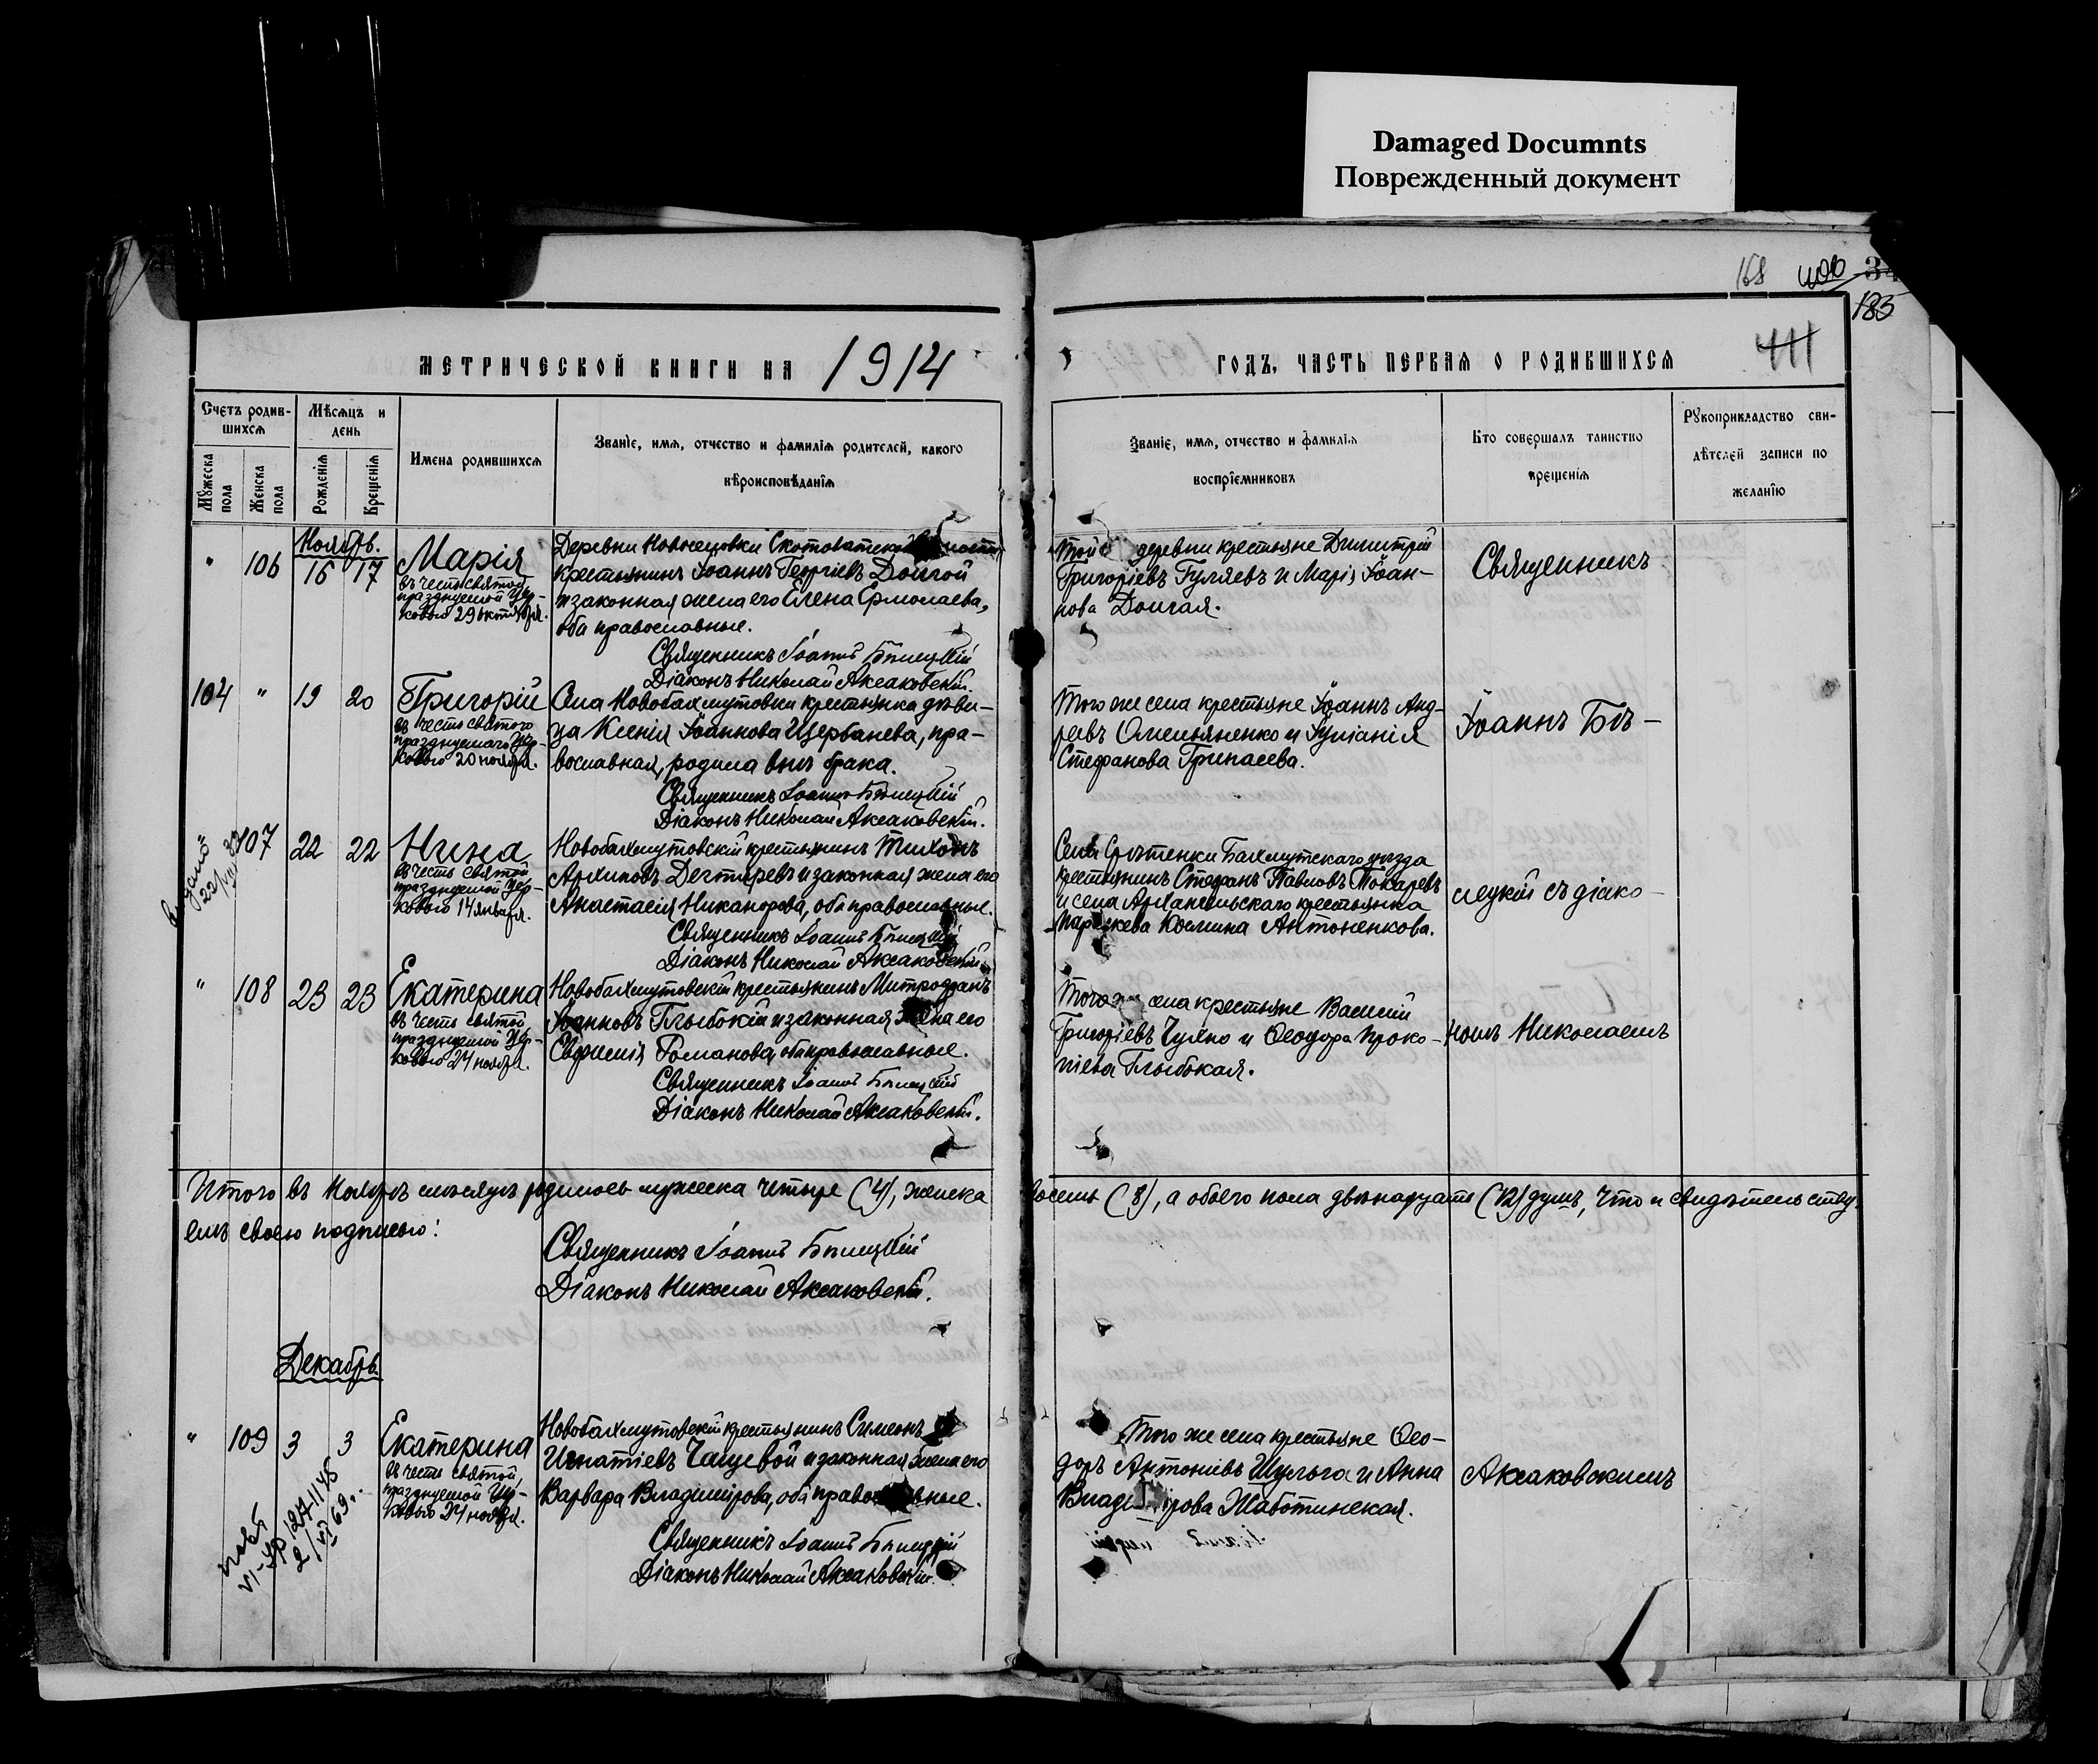 Damaged Documnts
Поврежденный документ
168
183
411
МЕТРИЧЕСКОЙ КНИГИ НА 1914 ГОДЪ, ЧАСТЬ ПЕРВАЯ О РОДИВШИХСЯ
Счетъ родив-
шихся
Мужеска пола
Женска пола
Мѣсяцъ и
день
Рожденія
Крещенія
Имена родившихся
Званіе, имя, отчество и фамилія родителей, какого
вѣроисповѣданія
Званіе, имя, отчество и фамилія
воспріемниковъ
Кто совершалъ таинство
крещенія
Рукоприкладство сви-
дѣтелей записи по
желанію
Ноябрь.
" 106 16 17
Марія
въ честь святой
празднуемой Цер-
ковью 29 октября.
Деревни Новоселовки Скотоватской
крестьянинъ Іоаннъ Георгіевъ Долгой
и законная жена его Елена Ермолаева,
оба православные.
Священникъ Іоаннъ Бѣлицкій
Діаконъ Николай Аксаковскій.
Той деревни крестьяне Димитрій
Григоріевъ Гуляевъ и Марія Іоан-
нова Долгая.
Священникъ
104 " 19 20
Григорій
въ честь святого
празднуемаго Цер-
ковью 20 ноября.
Села Новобахмутовки крестьянка дѣви-
ца Ксенія Іоаннова Щербанева, пра-
вославная, родила внѣ брака.
Священникъ Іоаннъ Бѣлицкій
Діаконъ Николай Аксаковскій.
Того же села крестьяне Іоаннъ Анд-
реевъ Омельяненко и Іуліанія
Стефанова Гринасева.
Іоаннъ Бѣ-
107 22 22
Нина
въ честь святой
празднуемой Цер-
ковью 14 января.
Новобахмутовскій крестьянинъ Тихонъ
Архиповъ Дегтяревъ и законная жена его
Анастасія Никанорова, оба православные.
Священникъ Іоаннъ Бѣлицкій
Діаконъ Николай Аксаковскій.
Села Срѣтенки Бахмутскаго уѣзда
крестьянинъ Стефанъ Павловъ Токаревъ
и села Архангельскаго крестьянка
Параскева Космина Антоненкова.
лецкій съ діако-
" 108 23 23
Екатерина
въ честь святой
празднуемой Цер-
ковью 24 ноября.
Новобахмутовскій крестьянинъ Митрофанъ
Іоанновъ Глыбокій и законная жена его
Евфимія Романова, оба православные.
Священникъ Іоаннъ Бѣлицкій
Діаконъ Николай Аксаковскій.
Того же села крестьяне Василій
Григоріевъ Чуяно и Ѳеодора Проко-
піева Глыбокая.
номъ Николаемъ
Итого въ Ноябрѣ мѣсяцѣ родилось мужеска четыре (4), женска восемь (8), а обоего пола двѣнадцать (12) душъ, что и свидѣтельству-
емъ своею подписью:
Священникъ Іоаннъ Бѣлицкій
Діаконъ Николай Аксаковскій.
Декабрь
" 109 3 3
Екатерина
въ честь святой,
празднуемой Цер-
ковью 24 ноября.
Новобахмутовскій крестьянинъ Симеонъ
Игнатіевъ Чащевой и законная жена его
Варвара Владимірова, оба православные.
Священникъ Іоаннъ Бѣлицкій
Діаконъ Николай Аксаковскій.
Того же села крестьяне Ѳео-
доръ Антоніевъ Шульга и Анна
Владимірова Жаботинская.
Аксаковскимъ